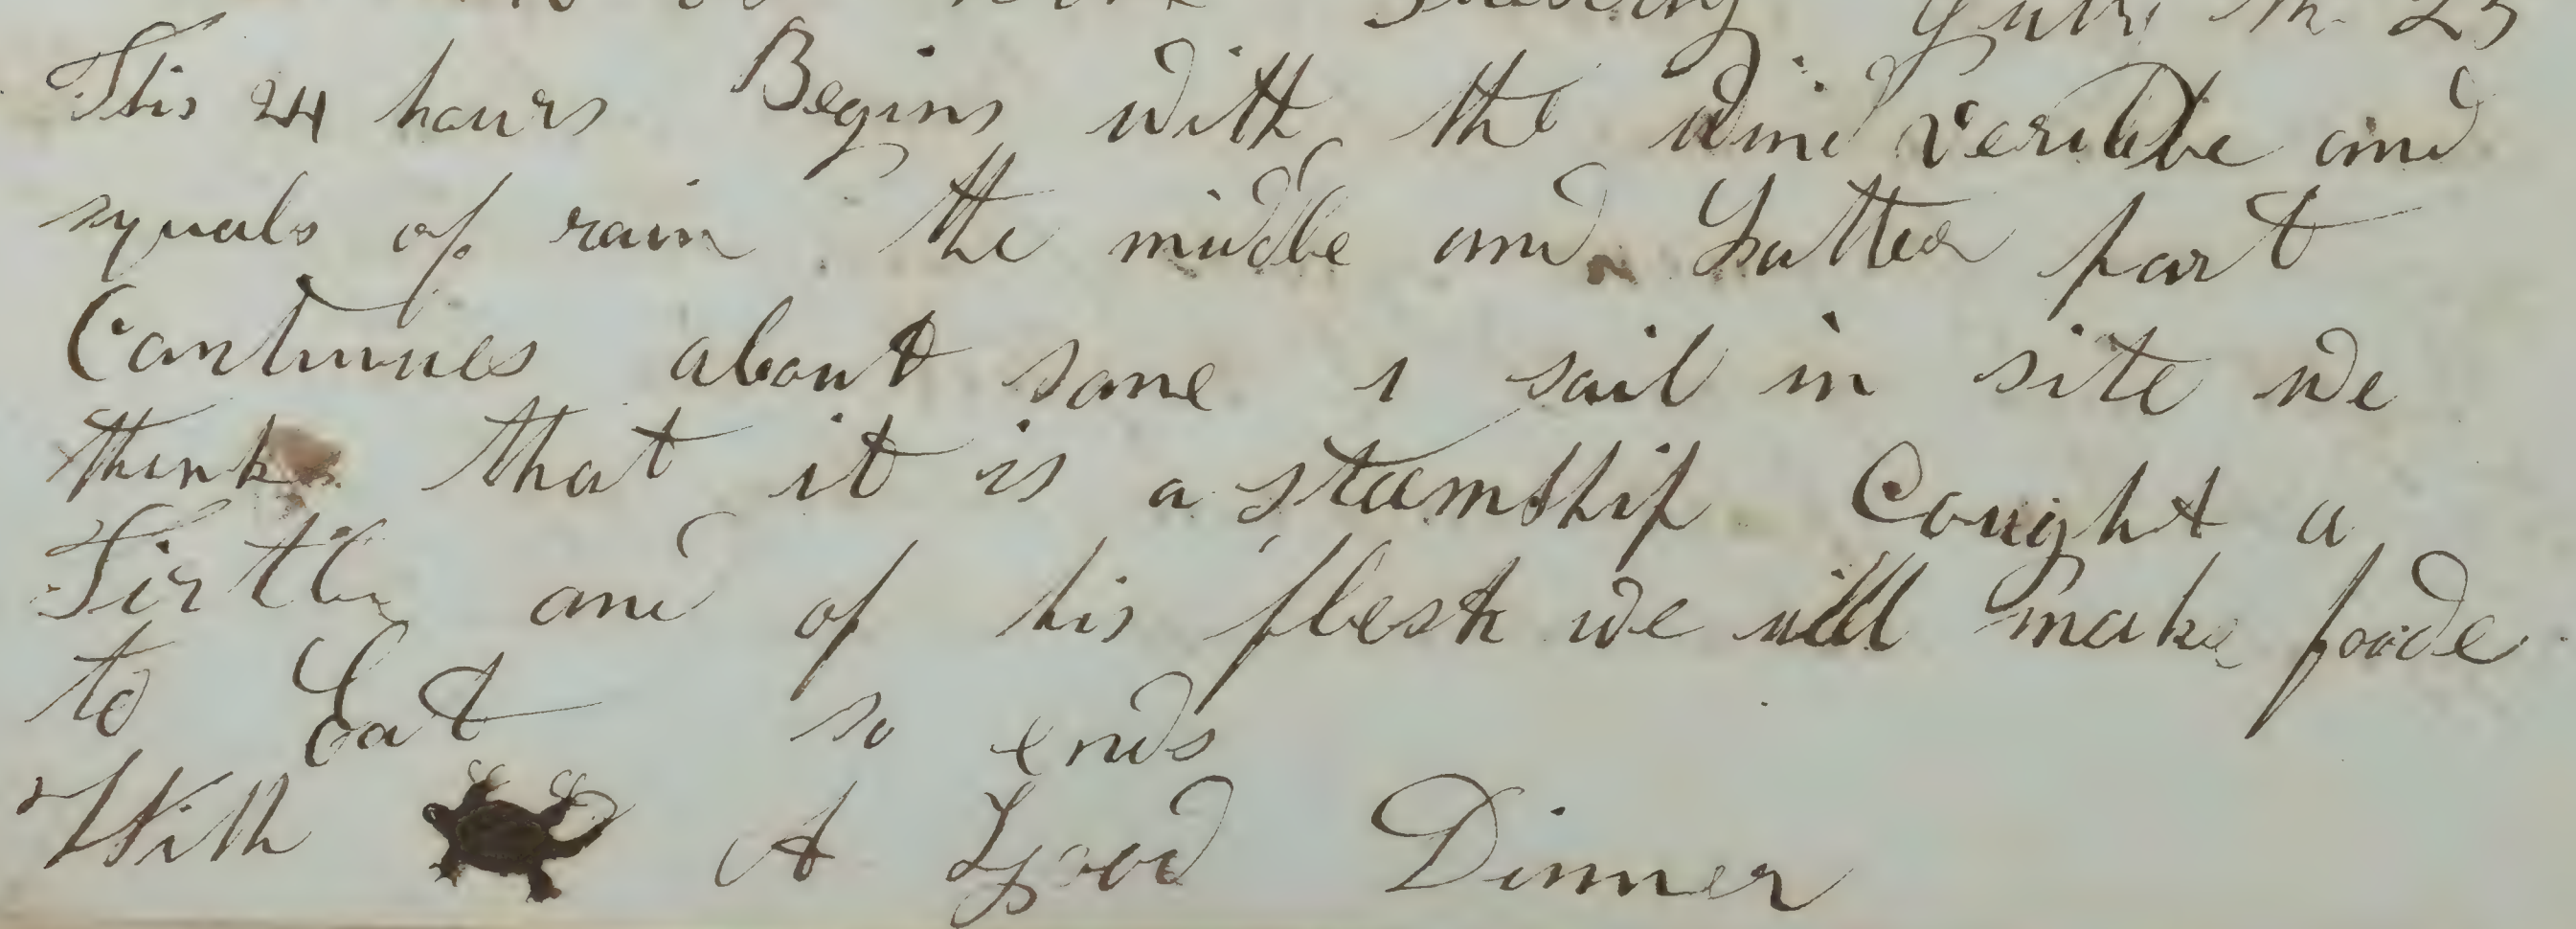 25
This 24 hours Begins with the wind verible and
squals of rain the midle and Latter part
Continues about same 1 sail in site we
think that it is a steamship Cought a
Tirtle and of his flesh we will make foode
to Eat so ends
With A Good Dinner